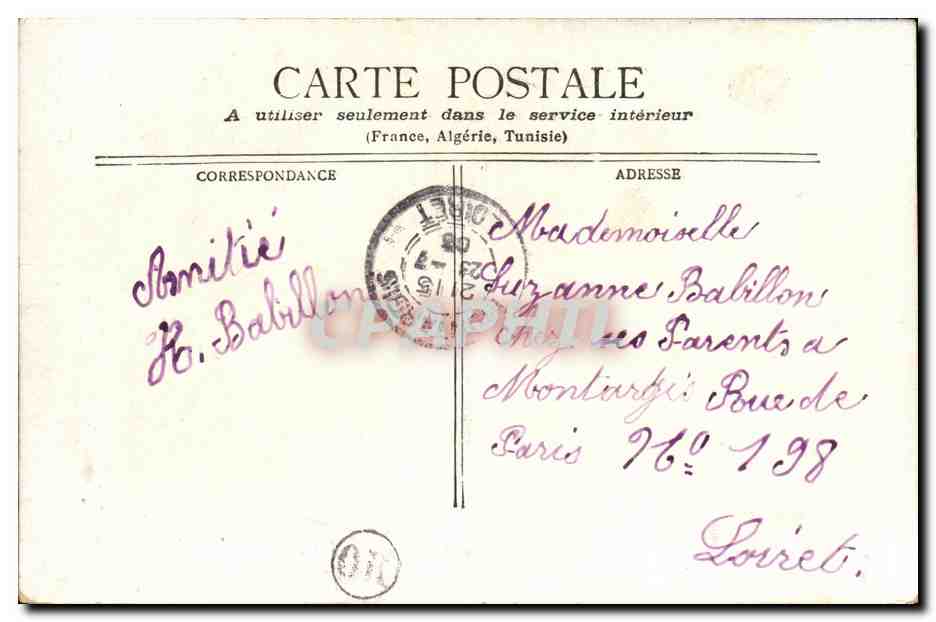 CARTE POSTALE
A utiliser seulement dans le service intérieur
(France, Algérie, Tunisie)
CORRESPONDANCE
Amitié
H. Babillon
ADRESSE
Mademoiselle
Suzanne Babillon
Chez ses Parents a
Montargis Rue de
Paris No 198
Loiret.
LOIRET
CPARAMA